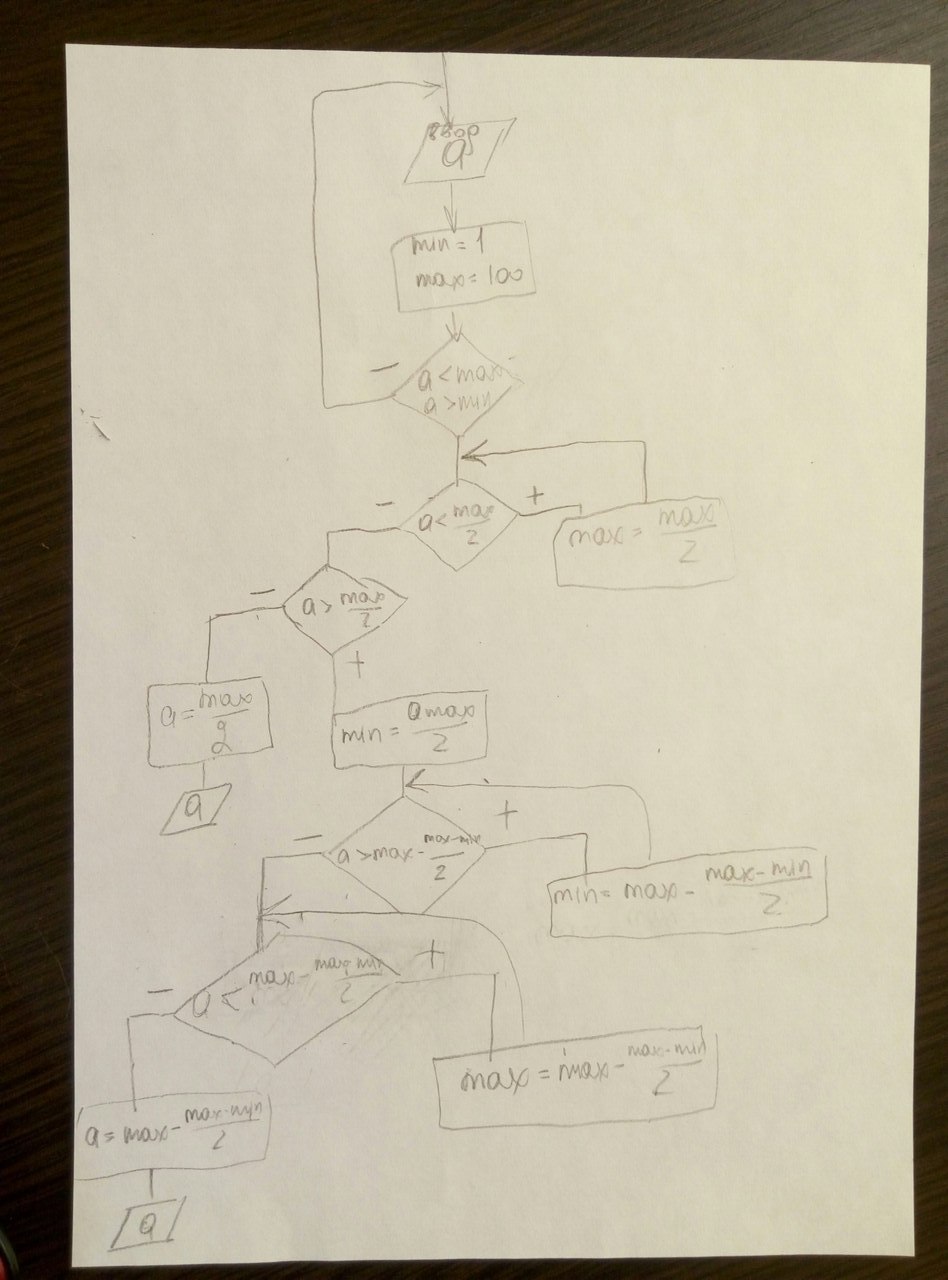 ввод
a
min = 1
max = 100
−
a < max
a > min
−
a < max/2
+
max = max/2
−
a > max/2
+
a = max/2
min = a max/2
a
−
a > max - max-min/2
+
min = max - max-min/2
−
a < max - max-min/2
+
max = max - max-min/2
a = max - max-min/2
a